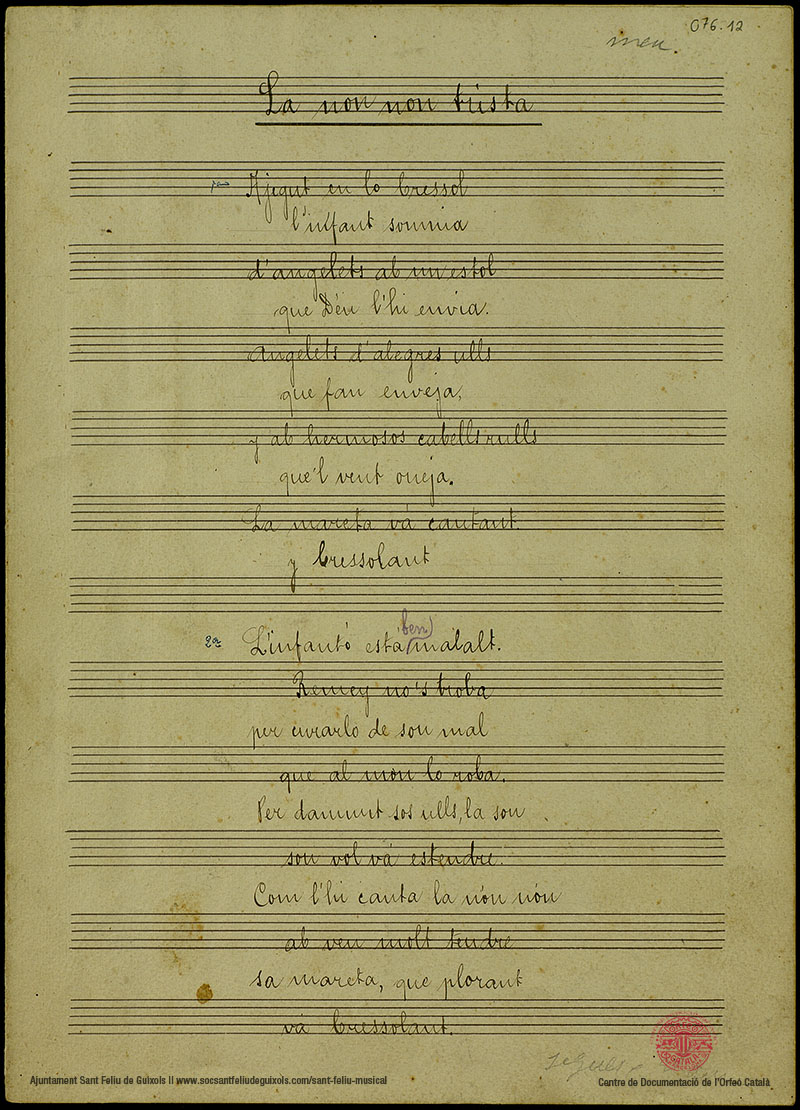 076.12
meu.
La non non trista
1a Ajegut en lo bressol
l'infant somnia
d'angelets ab un estol
que Déu l'hi envia.
Angelets d'alegres ulls
que fan enveja,
y ab hermosos cabells rulls
que'l vent oneja.
La mareta vá cantant.
y bressolant
2a L'infantó esta (ben) malalt.
Remey no's troba
per curarlo de son mal
que al món lo roba.
Per damunt sos ulls, la son
son vol vá estendre.
Com l'hi canta la nón nón
ab veu molt tendre
sa mareta, que plorant
vá bressolant.
Ajuntament Sant Feliu de Guíxols II www.socsantfeliudeguixols.com/sant-feliu-musical
Centre de Documentació de l'Orfeó Català